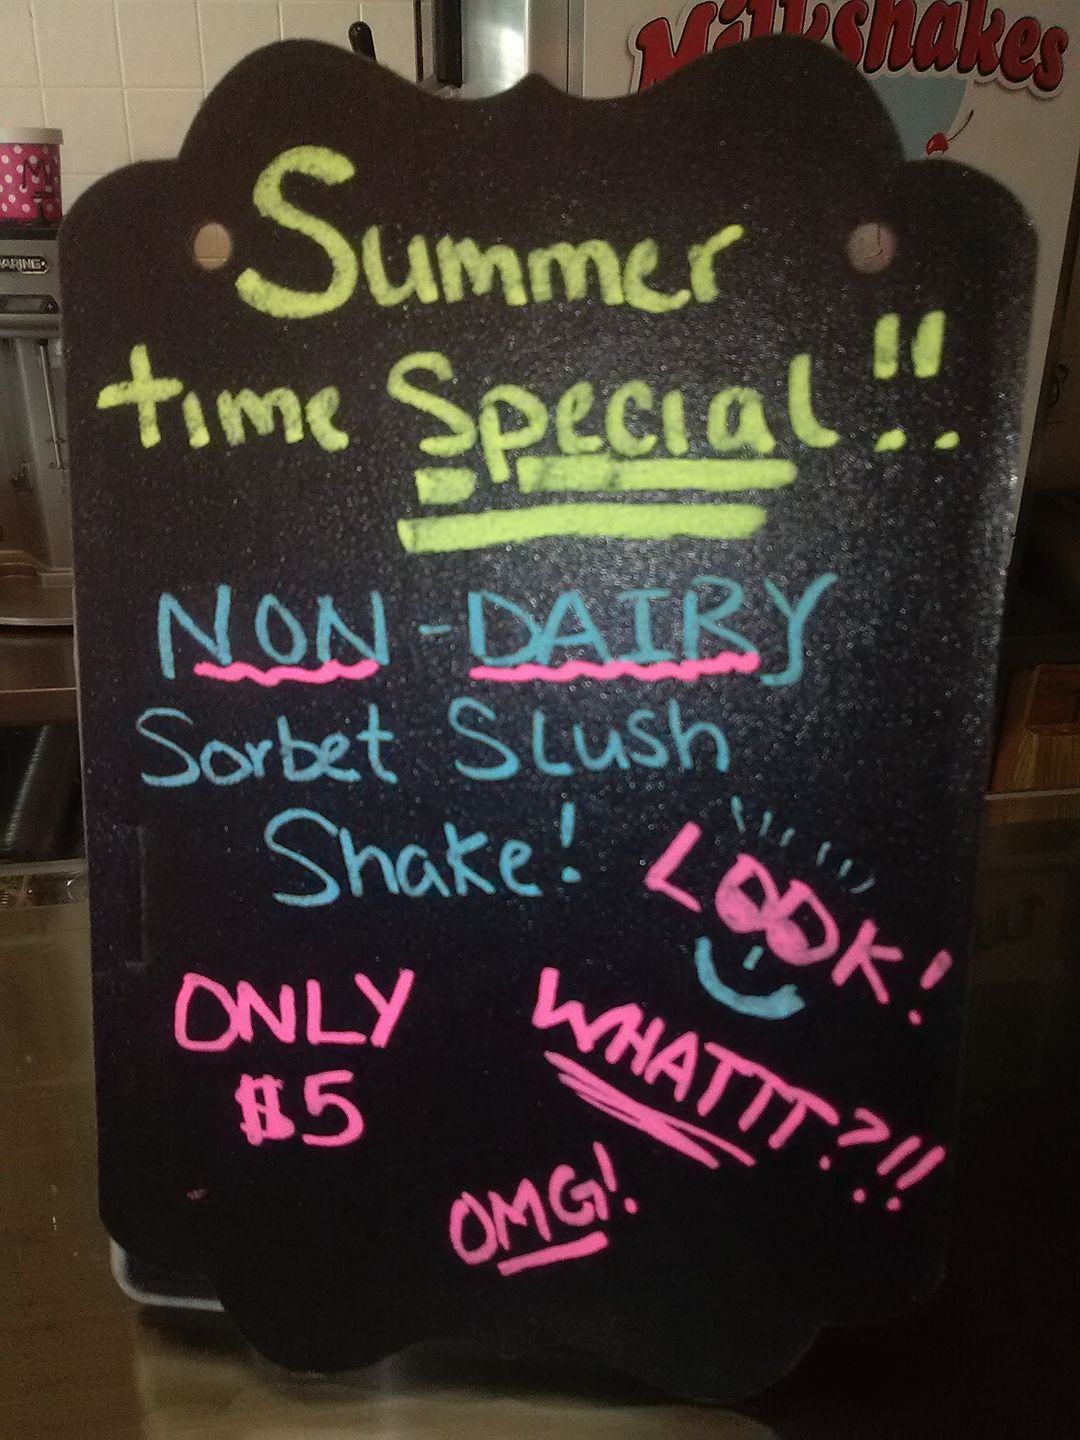 Milkshakes
ARING
Summer
time Special!!
NON-DAIRY
Sorbet Slush
Shake!
LOOK!
ONLY
$5
WHATTT?!!
OMG!